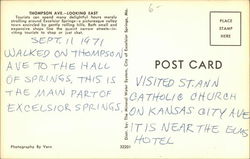 THOMPSON AVE.—LOOKING EAST
Tourists can spend many delightful hours merely
strolling around Excelsior Springs, a picturesque valley
town encircled by gently rolling hills. Both small and
expensive shops line the quaint narrow streets—inviting
tourists to shop or just chat.
6-
SEPT. 11 1971
WALKED ON THOMPSON
AVE TO THE HALL
OF SPRINGS, THIS IS
THE MAIN PART OF
EXCELSIOR SPRINGS,
Photography by Vern
32201
POST CARD
VISITED ST. ANN
CATHOLIC CHURCH
ON KANSAS CITY AVE
IT IS NEAR THE ELMS
HOTEL